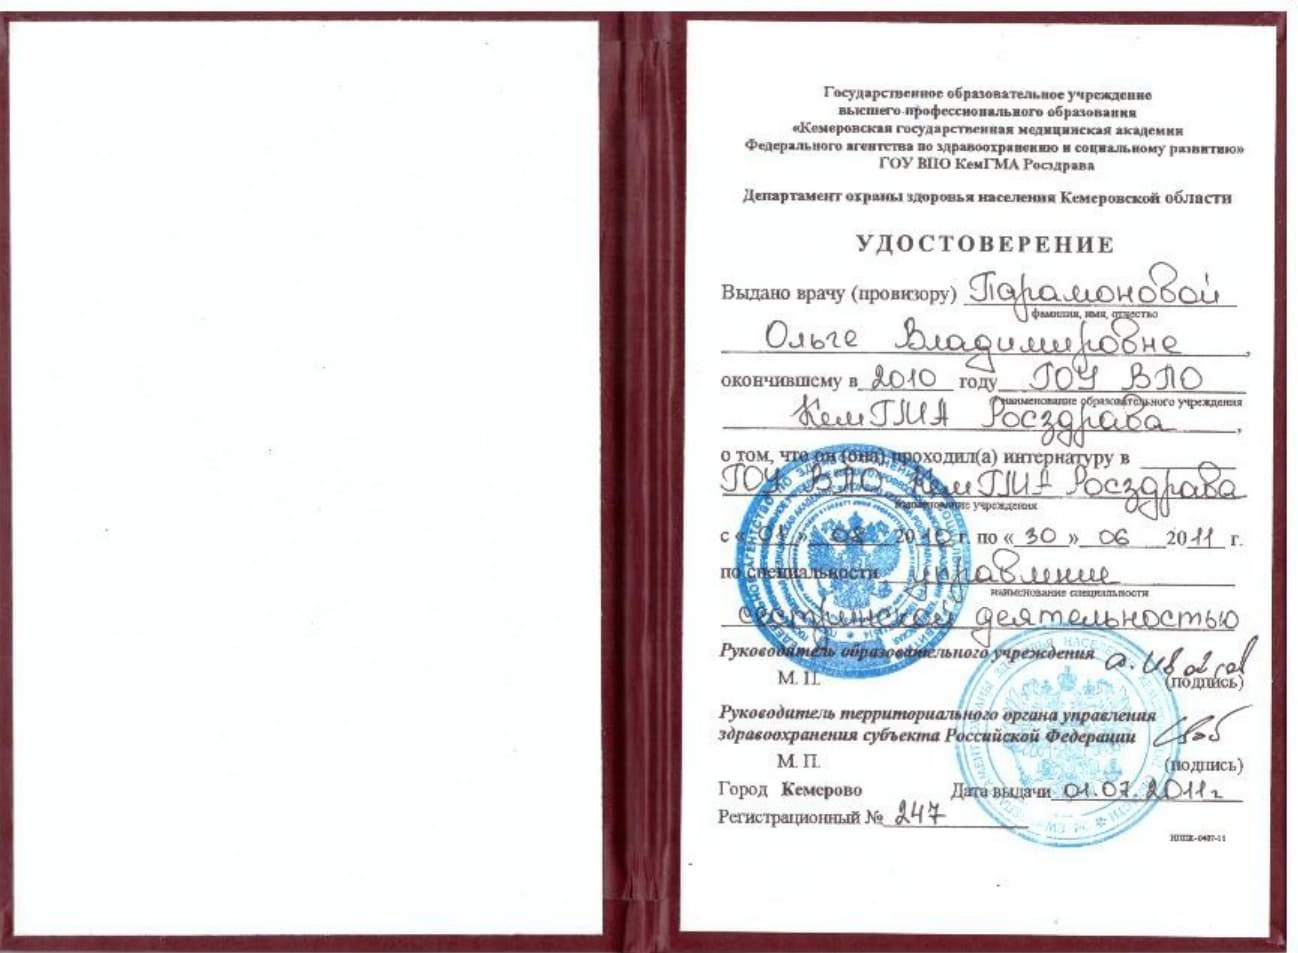 Государственное образовательное учреждение
высшего профессионального образования
«Кемеровская государственная медицинская академия
Федерального агентства по здравоохранению и социальному развитию»
ГОУ ВПО КемГМА Росздрава
Департамент охраны здоровья населения Кемеровской области
УДОСТОВЕРЕНИЕ
Выдано врачу (провизору) Парамоновой
фамилия, имя, отчество
Ольге Владимировне,
окончившему в 2010 году ГОУ ВПО
наименование образовательного учреждения
КемГМА Росздрава,
о том, что он (она) проходил(а) интернатуру в
ГОУ ВПО КемГМА Росздрава
наименование учреждения
с «01» 08 2010 г. по «30» 06 2011 г.
по специальности управление
наименование специальности
сестринской деятельностью
Руководитель образовательного учреждения
М. П. (подпись)
Руководитель территориального органа управления
здравоохранения субъекта Российской Федерации
М. П. (подпись)
Город Кемерово Дата выдачи 01.07.2011г
Регистрационный № 247